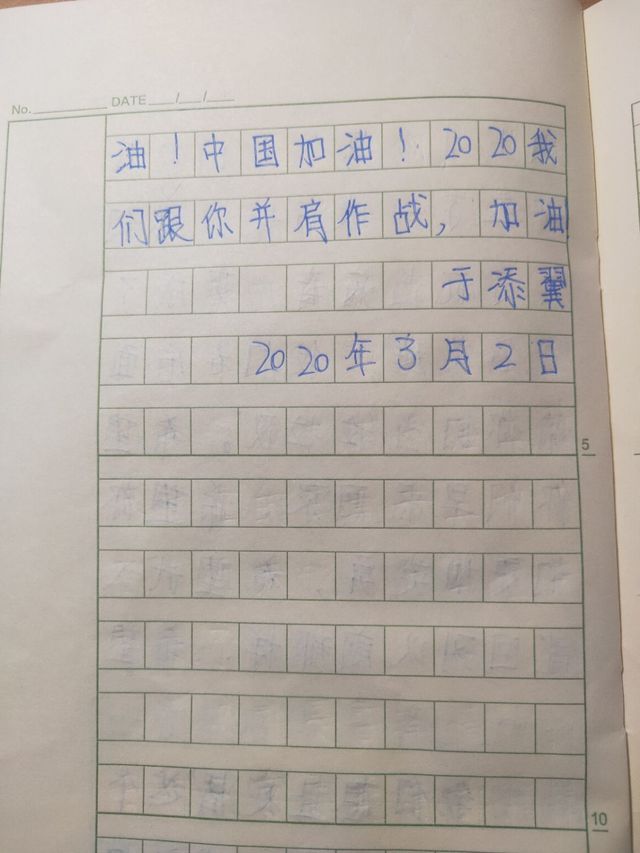 No. DATE / /
油！中国加油！2020我
们跟你并肩作战，加油
于添翼
2020年3月2日
5
10